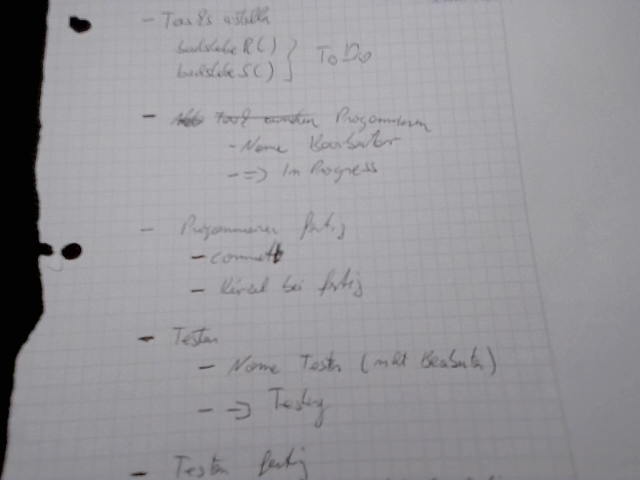 - Tasks erstellen
buchstabe R()
buchstabe S() } To Do
- Programmieren
- Name Bearbeiter
- => In Progress
- Programmieren fertig
- commit
- bei fertig
- Testen
- Name Tester (nicht Bearbeiter)
- => Testing
- Testen fertig